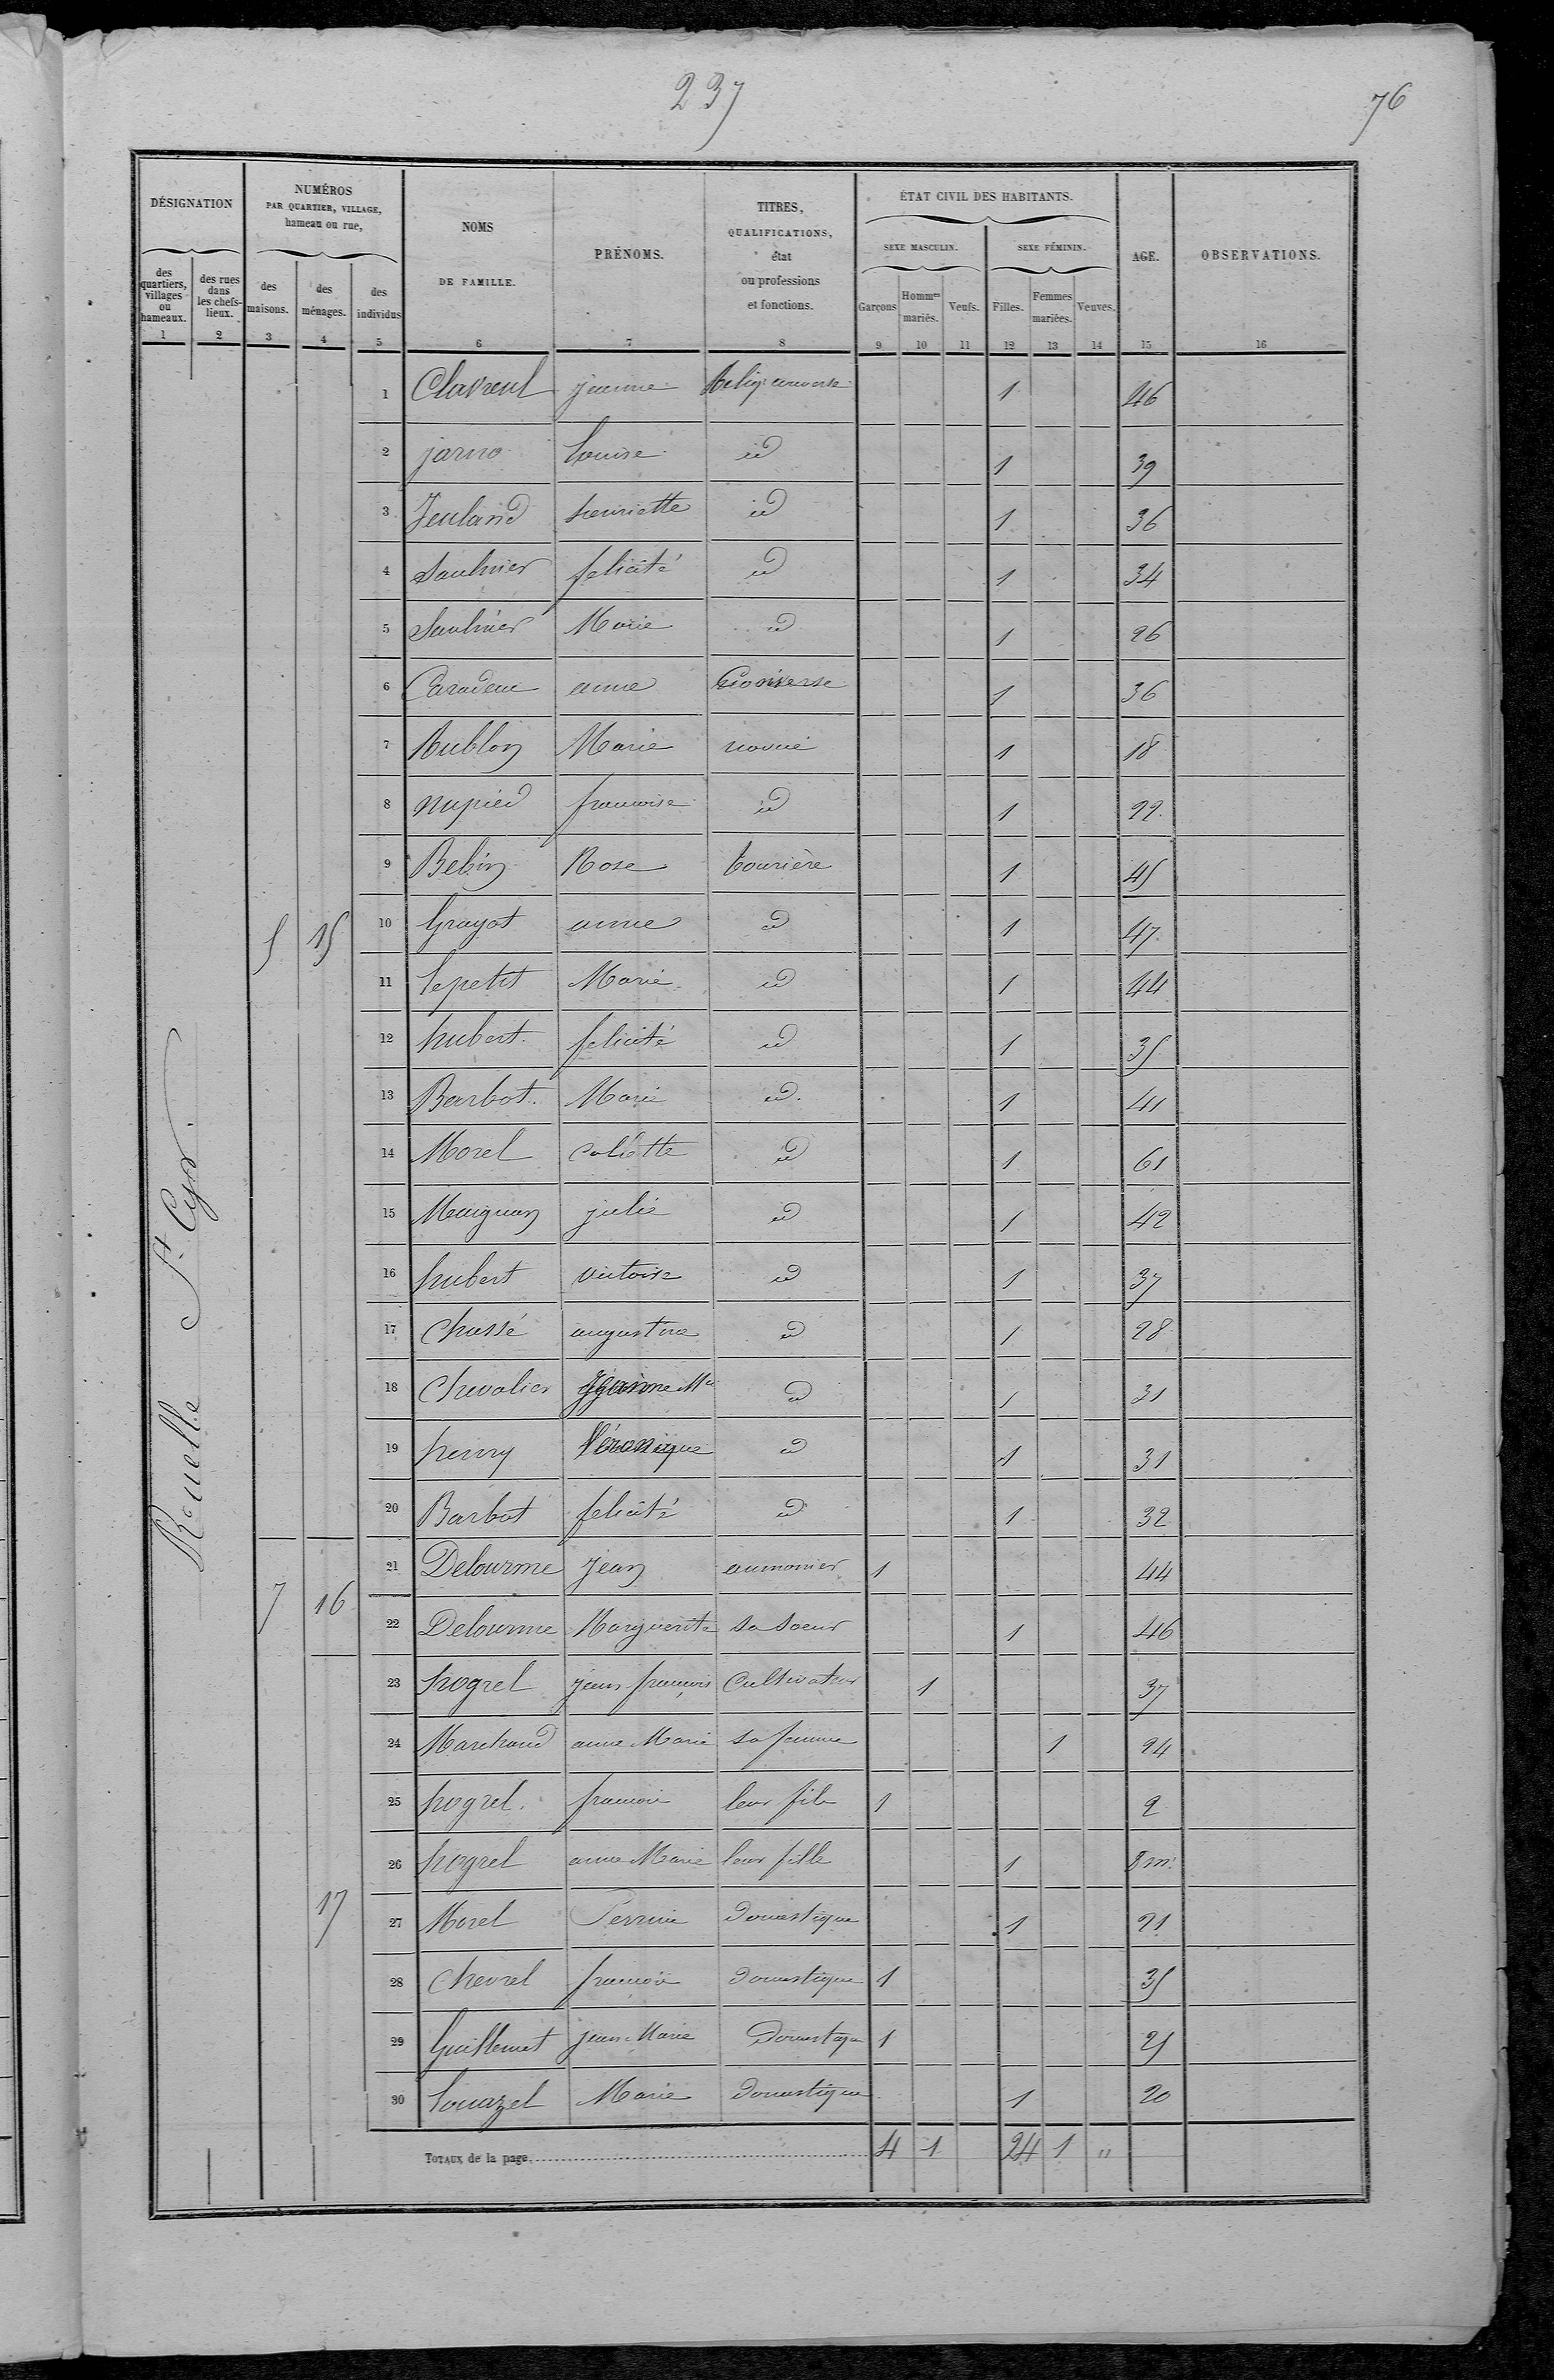 237
76
DÉSIGNATION
NUMÉROS
PAR QUARTIER, VILLAGE,
hameau ou rue,
NOMS
DE FAMILLE.
PRÉNOMS.
TITRES,
QUALIFICATIONS,
état
ou professions
et fonctions.
ÉTAT CIVIL DES HABITANTS.
SEXE MASCULIN.
SEXE FÉMININ.
AGE.
OBSERVATIONS.
des quartiers, villages ou hameaux.
des rues dans les chefs-lieux.
des maisons.
des ménages.
des individus
Garçons
Hommes mariés.
Veufs.
Filles.
Femmes mariées.
Veuves.
1 2 3 4 5 6 7 8 9 10 11 12 13 14 15 16
Ruelle St Cyr.
1 Clavreul jeanne Relig: converse 1 46
2 jarno Louise id 1 39
3 Jeuland henriette id 1 36
4 Saulnier felicité id 1 34
5 Saulnier Marie id 1 26
6 Caradeuc anne Converse 1 36
7 Aublon Marie novice 1 18
8 nupied francoise id 1 22
9 Bebin Rose tourière 1 45
5 15 10 Grayot anne id 1 47
11 Lepetit Marie id 1 44
12 hubert felicité id 1 35
13 Barbot Marie id 1 41
14 Morel colette id 1 61
15 Maignan julie id 1 42
16 hubert victoire id 1 37
17 Chassé augustine id 1 28
18 Chevalier Jeanne Mie id 1 31
19 henry Véronique id 1 31
20 Barbot felicité id 1 32
21 Delourme Jean aumonier 1 44
7 16
22 Delourme Marguerite sa soeur 1 46
23 hogrel jean françois Cultivateur 1 37
24 Marchand anne Marie sa femme 1 24
25 hogrel francois leur fils 1 2
26 hogrel anne Marie leur fille 1 8 m.
17
27 Morel Perrine Domestique 1 21
28 Chevrel françois Domestique 1 35
29 Guillemet jean Marie Domestique 1 25
30 Louazel Marie Domestique 1 20
TOTAUX de la page 4 1 24 1 "